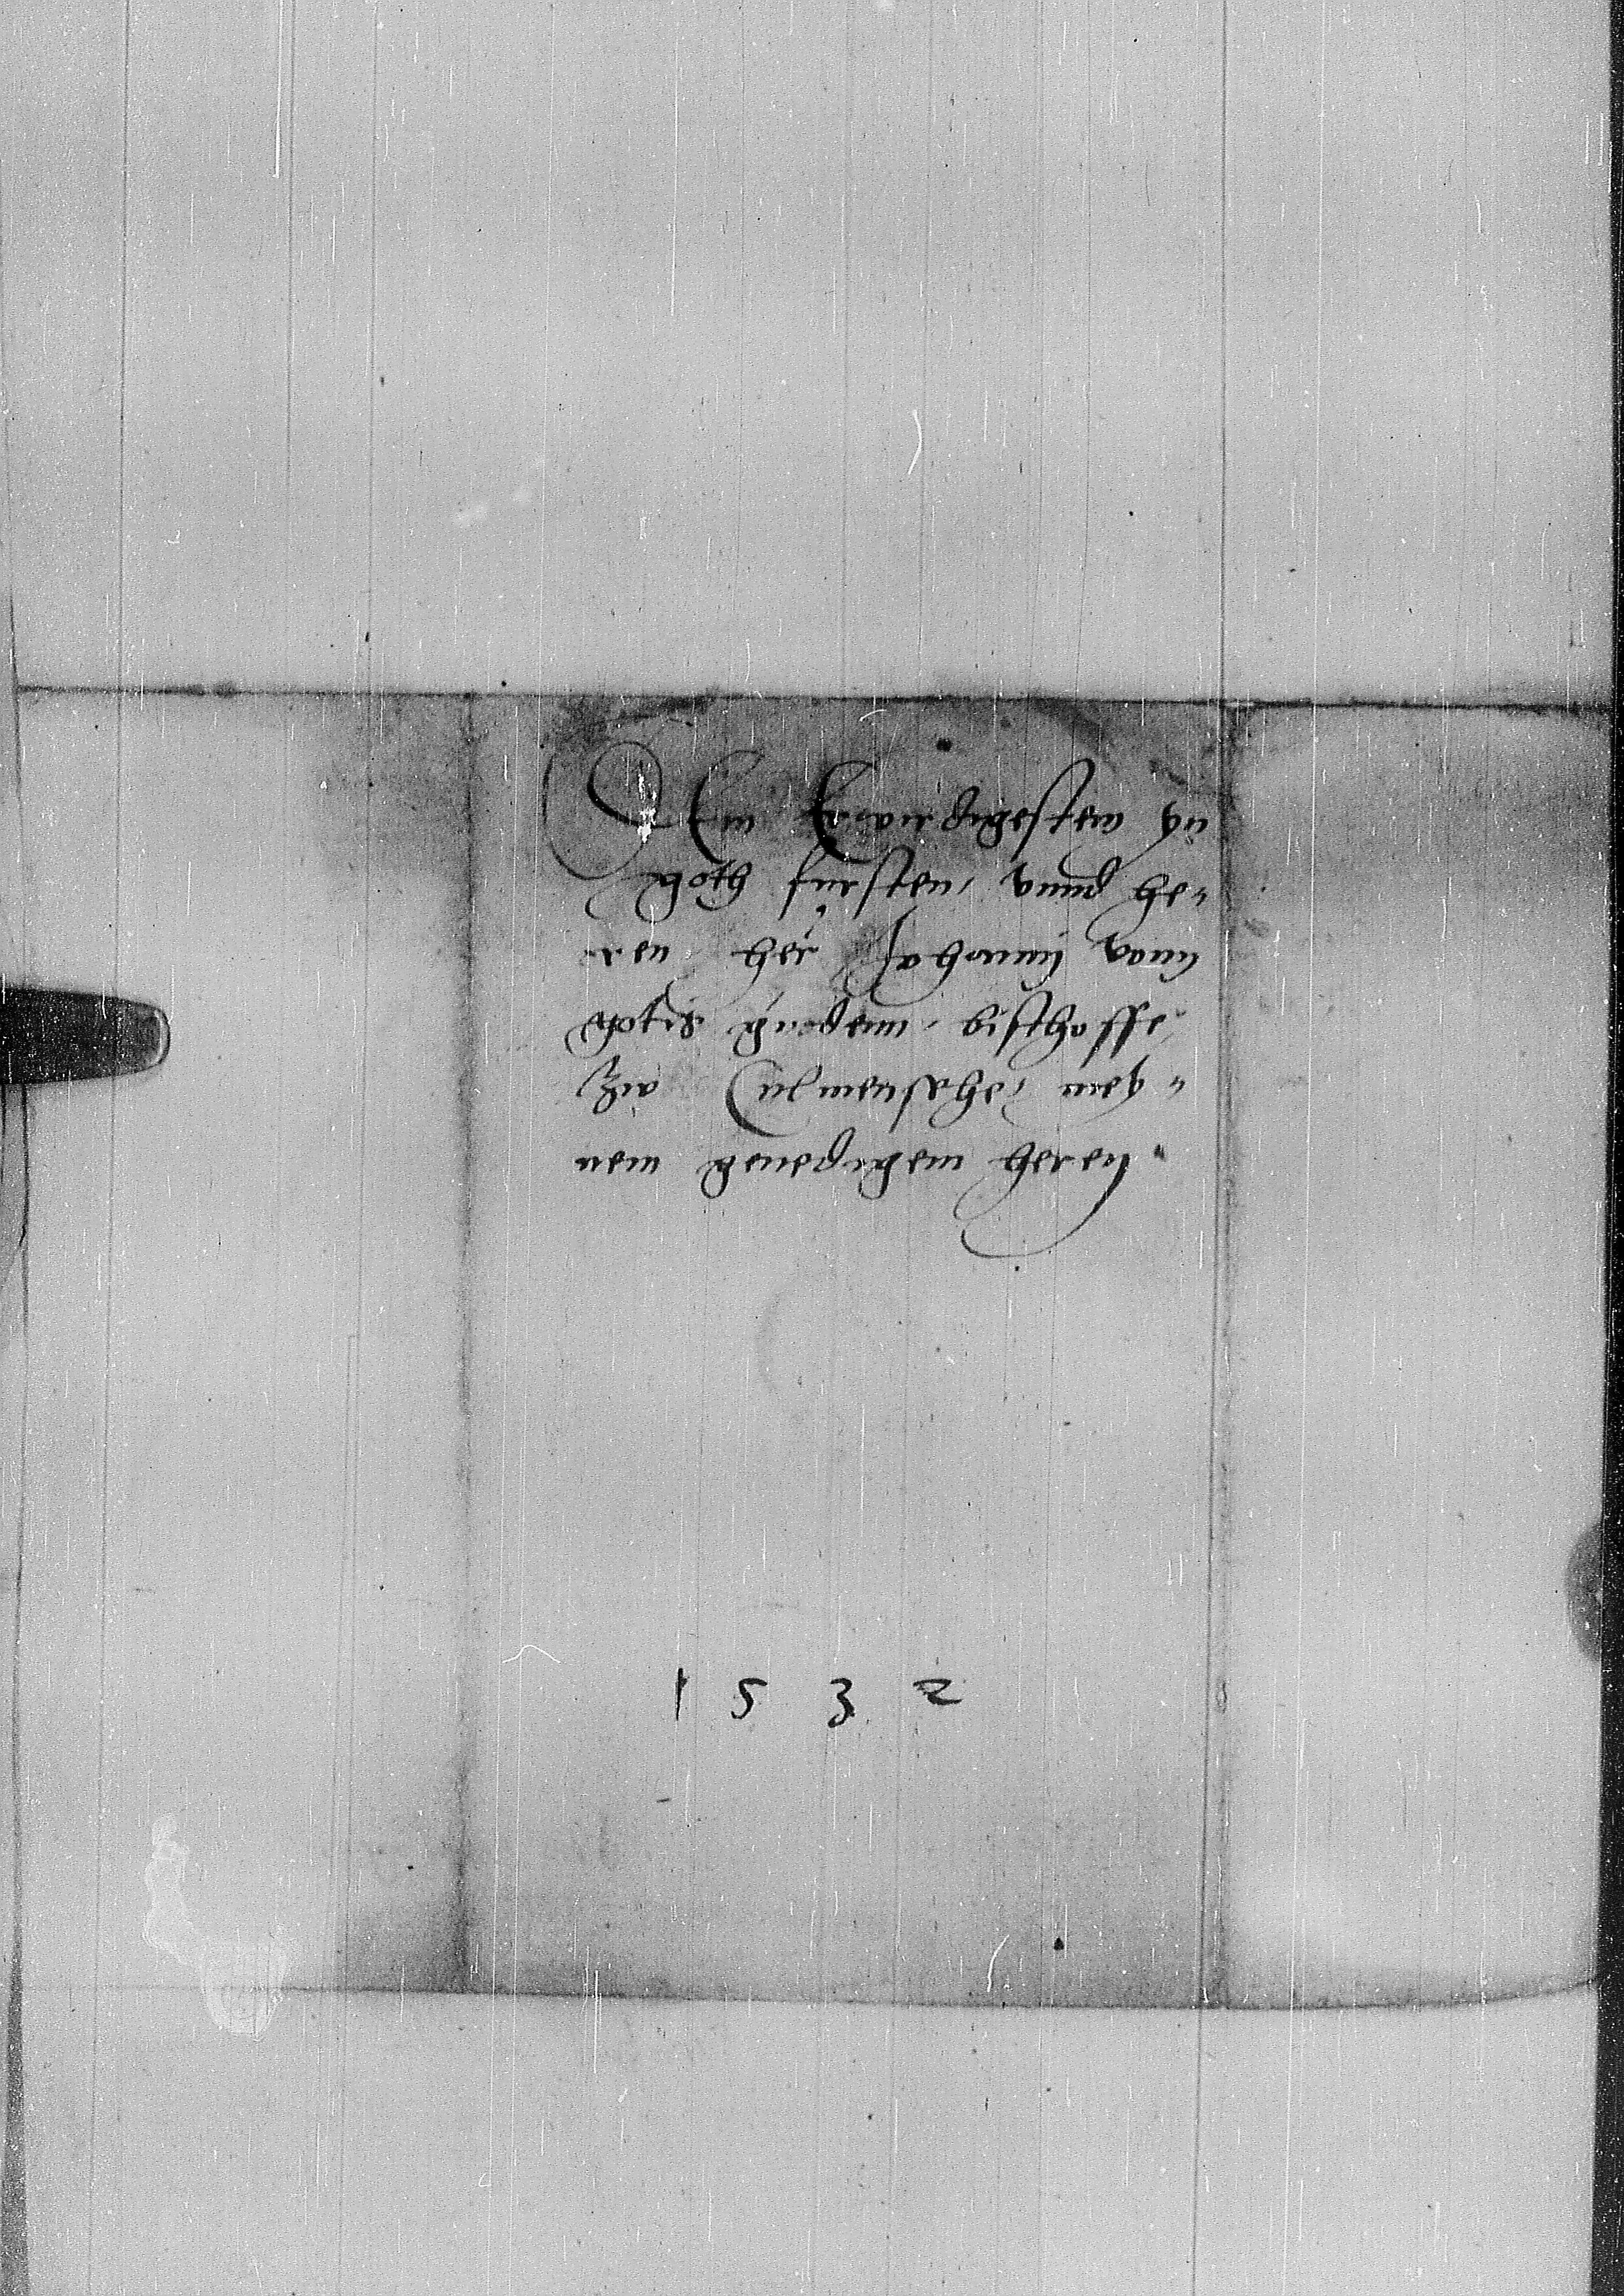 Dem Erwirdigestem yn
goth fursten, vnnd he=
ren her Johannj vonn
gotis gnadenn bischoffe
zw Culmensehe, mey=
nem genedigem heren
1532